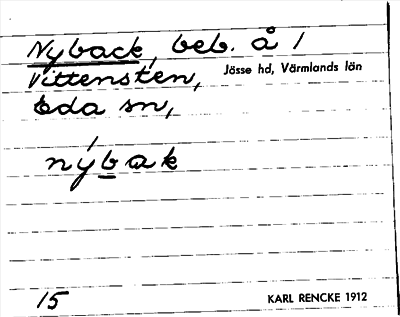 Nyback, beb. å 1
Vittensten, Jösse hd, Värmlands län
Eda sn,
nýbak
15 KARL RENCKE 1912